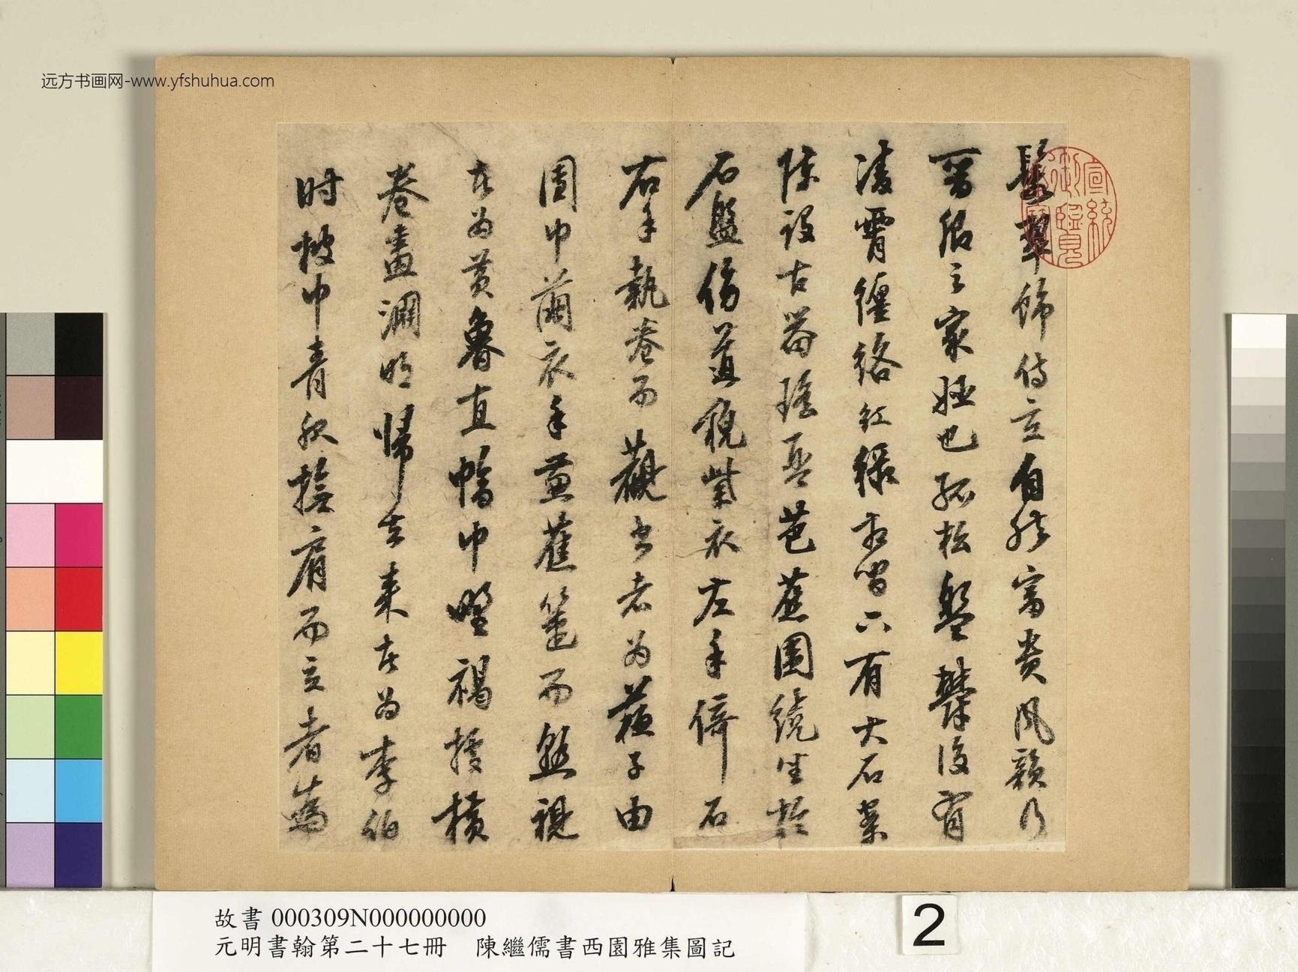 远方书画网-www.yfshuhua.com
鬟翠飾侍立自然富貴風韻乃
晉卿之家姬也孤松盤鬱後有
凌霄纏絡紅綠相間下有大石案
陳設古器瑤琴芭蕉圍繞坐於
石盤傍道貌紫衣左手倚石
右手執卷而觀書者為蘇子由
團巾繭衣手秉蕉箑而熟視
者為黃魯直幅巾野褐據橫
卷畫淵明歸去來者為李伯
時披巾青服撫肩而立者為
宣統
御覽
之寶
故書 000309N000000000
元明書翰第二十七冊 陳繼儒書西園雅集圖記
2